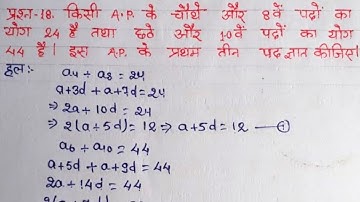 प्रश्न-18. किसी A.P. के चौथे और 8वें पदों का
योग 24 है तथा छठे और 10वें पदों का योग
44 है। इस A.P. के प्रथम तीन पद ज्ञात कीजिए।
हल:-
a₄ + a₈ = 24
a+3d + a+7d = 24
⇒ 2a + 10d = 24
⇒ 2(a+5d) = 12 ⇒ a+5d = 12 — ①
a₆ + a₁₀ = 44
a+5d + a+9d = 44
2a + 14d = 44